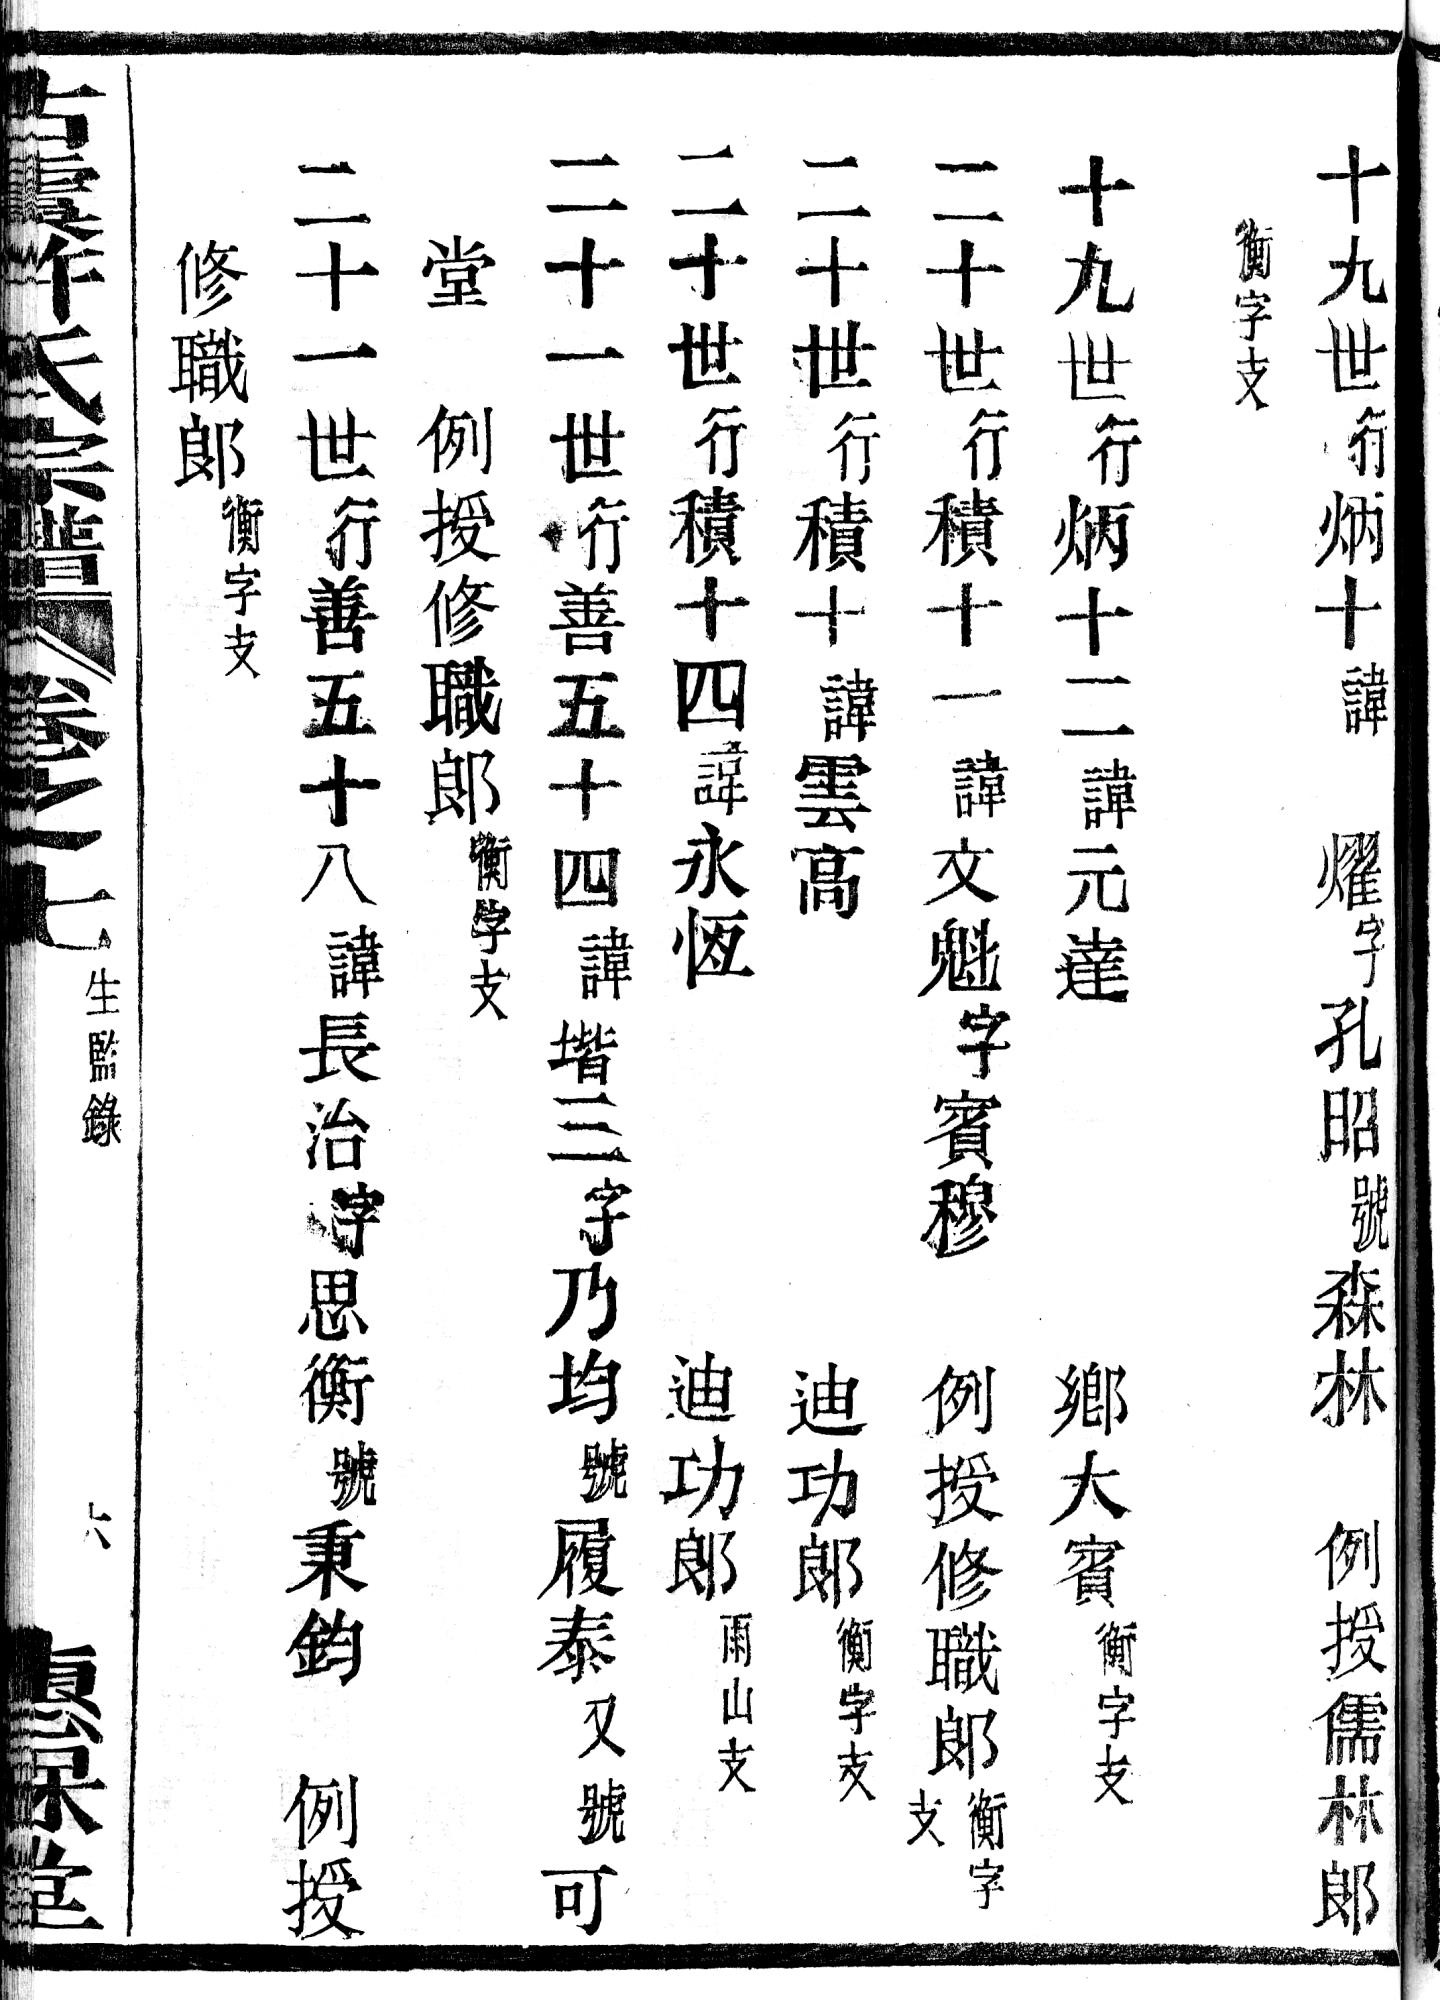 十九世行炳十諱 燿字孔昭號森林 例授儒林郎
衡字支
十九世行炳十二諱元達 鄉大賓衡字支
二十世行積十一諱文魁字賓穆 例授修職郎衡字支
二十世行積十諱雲高 迪功郎衡字支
二十世行積十四諱永恆 迪功郎雨山支
二十一世行善五十四諱堦三字乃均號履泰又號可
堂 例授修職郎衡字支
二十一世行善五十八諱長治字思衡號秉鈞 例授
修職郎衡字支
許氏宗譜 卷之七 生監錄 六